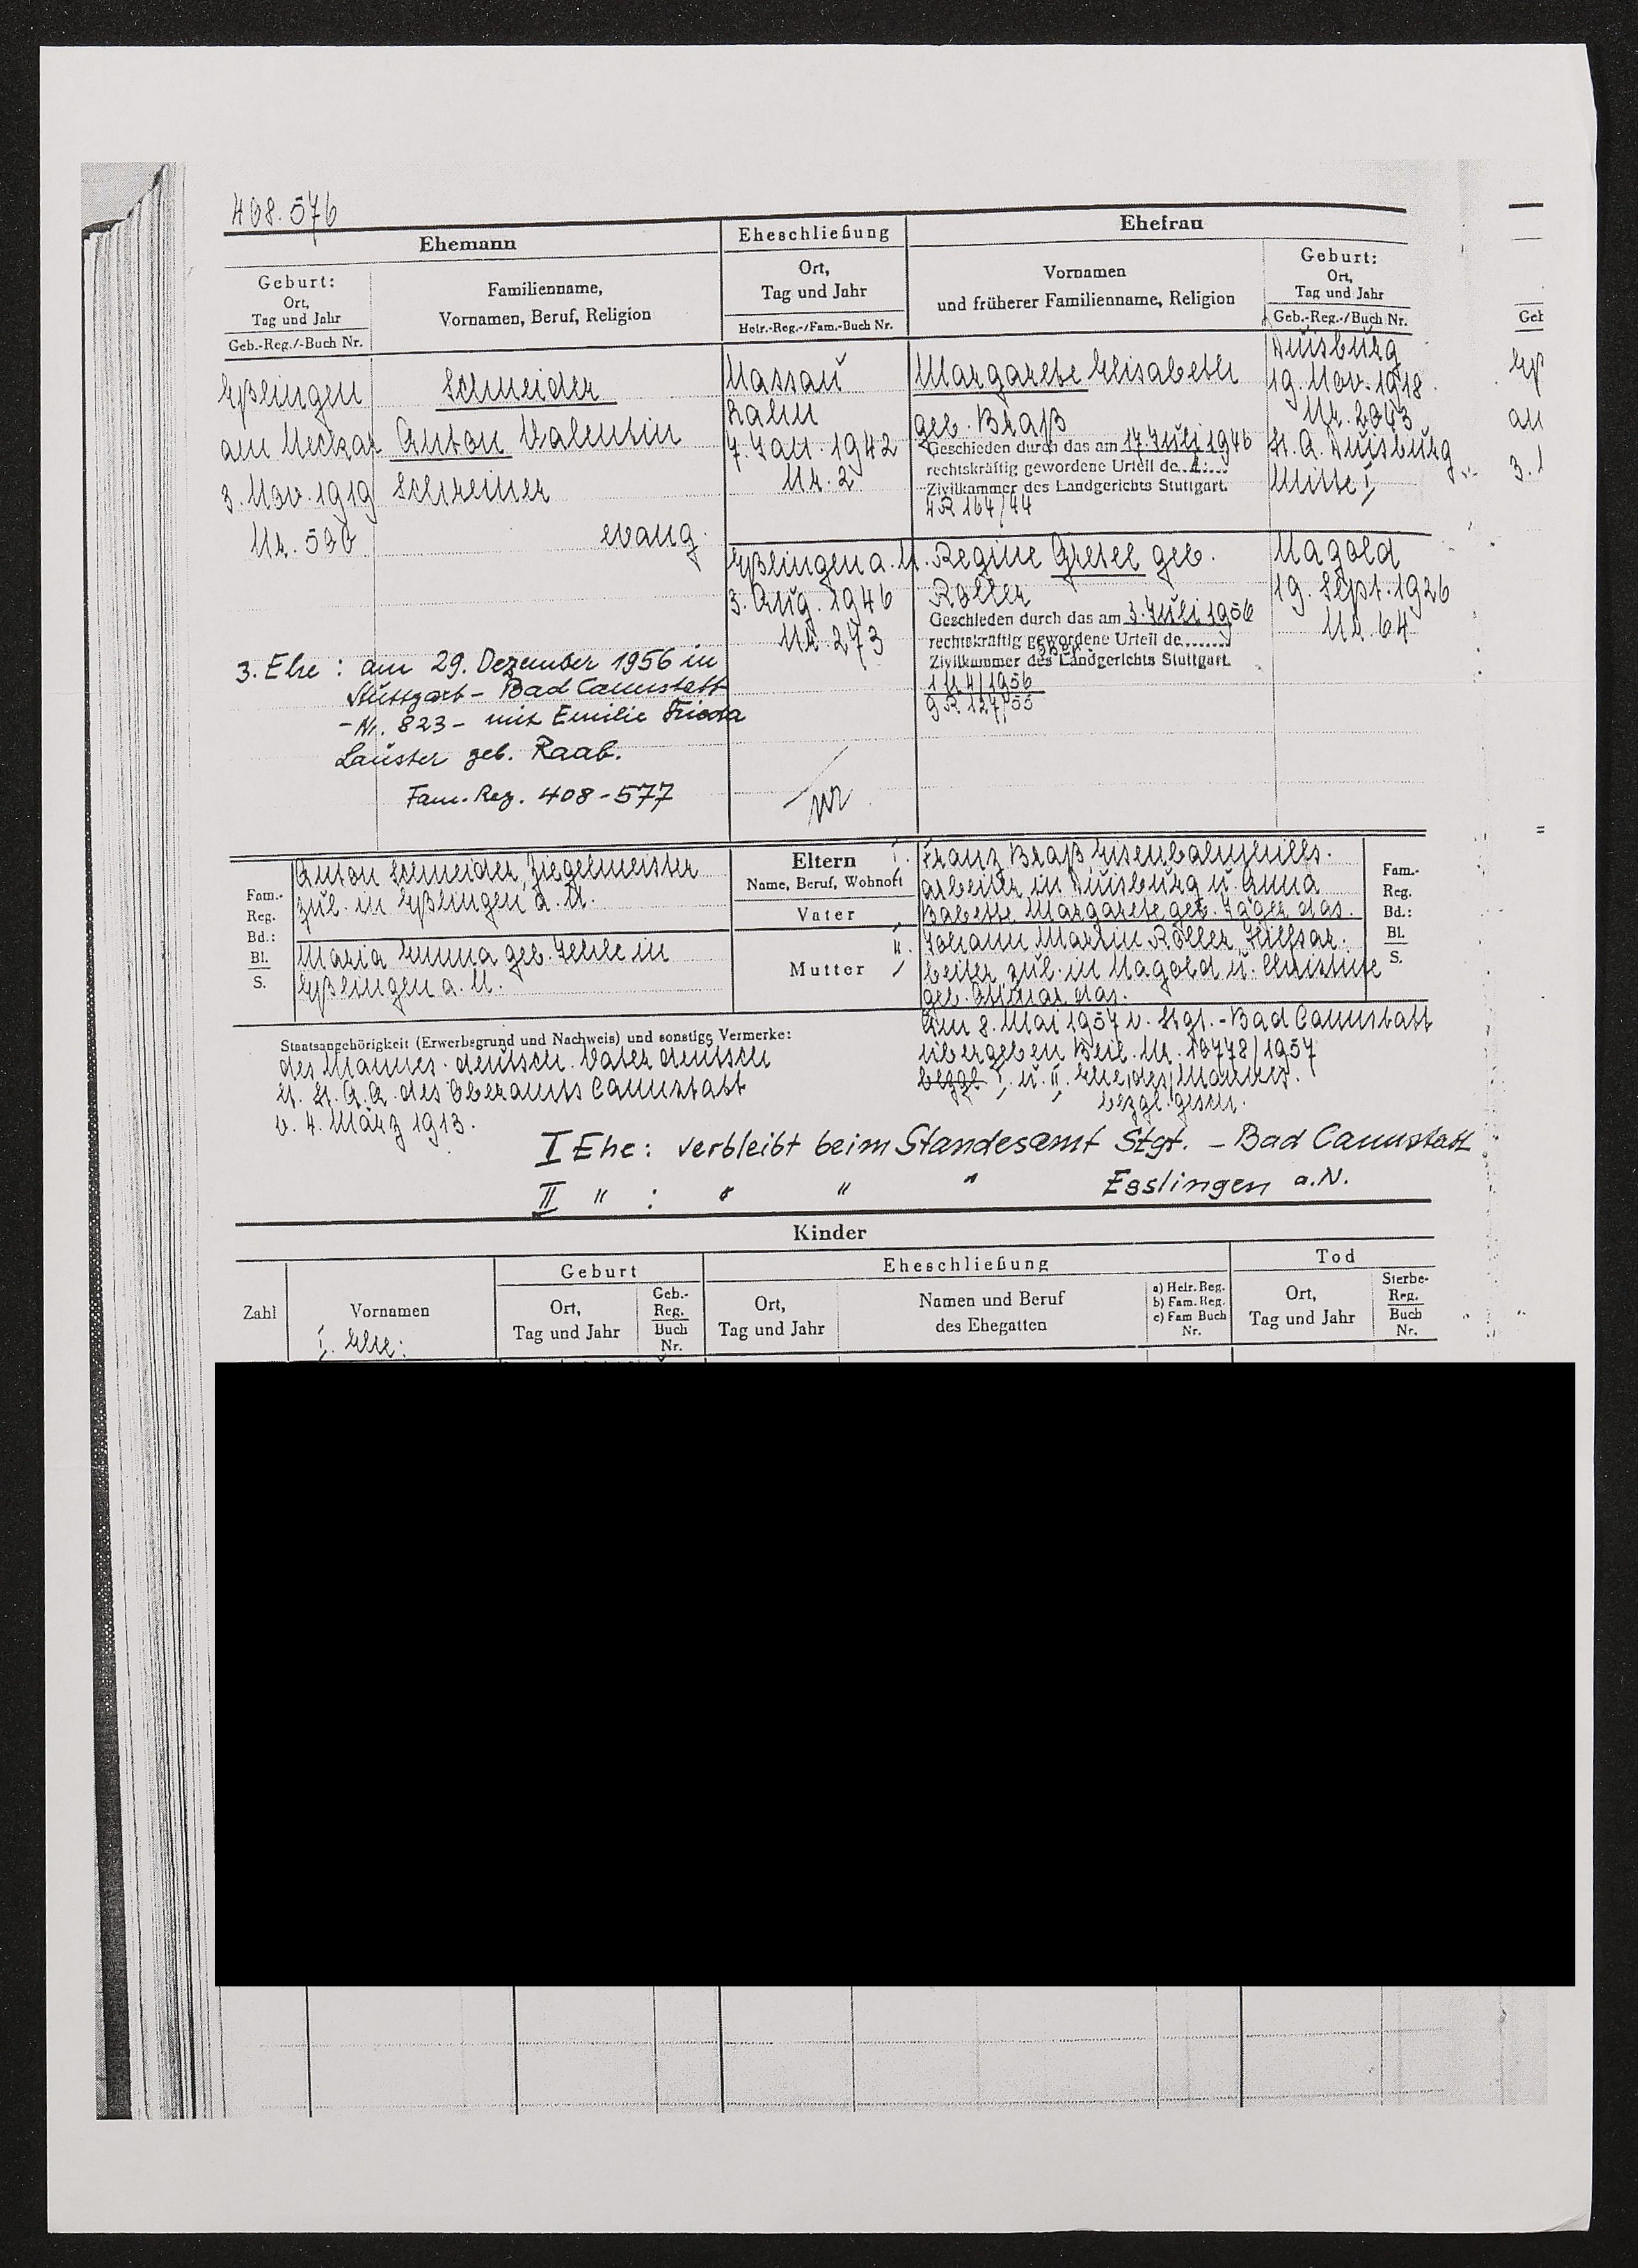 408.576
Ehemann
Eheschließung
Ehefrau
Geburt:
Ort,
Tag und Jahr
Geb.-Reg./-Buch Nr.
Familienname,
Vornamen, Beruf, Religion
Ort,
Tag und Jahr
Heir.-Reg.-/Fam.-Buch Nr.
Vornamen
und früherer Familienname, Religion
Geburt:
Ort,
Tag und Jahr
Geb.-Reg.-/Buch Nr.
Eßlingen
am Neckar
3. Nov. 1919
Schneider
Anton Valentin
Schreiner
evang.
Nassau
Lahn
7. Jan. 1942
Nr. 2
Margarete Elisabeth
geb. Braß
Geschieden durch das am 17. Juli 1946
rechtskräftig gewordene Urteil de
Zivilkammer des Landgerichts Stuttgart.
4 R 164/44
Duisburg
19. Nov. 1918.
Nr. 2343
St. A. Duisburg
Mitte I
Eßlingen a. N.
3. Aug. 1946
Nr. 273
Regine Gretel geb.
Roller
Geschieden durch das am 3. Juli 1956
rechtskräftig gewordene Urteil de
Zivilkammer des Landgerichts Stuttgart.
1 U 4/1956
9 R 127/55
Nagold
19. Sept. 1926
Nr. 64
3. Ehe: am 29. Dezember 1956 in
Stuttgart- Bad Cannstatt
- Nr. 823 - mit Emilie Frieda
Lauster geb. Raab.
Fam. Reg. 408-577
Fam.-
Reg.
Bd.:
Bl.
S.
Anton Schneider, Ziegelmeister
zul. in Eßlingen a. N.
Maria Emma geb. in
Eßlingen a. N.
Eltern
Name, Beruf, Wohnort
Vater
Mutter
I. Franz Braß Eisenbahnhilfs-
arbeiter in Duisburg u. Anna
Babette Margarete geb. Jäger das.
II. Johann Martin Roller, Hilfsar-
beiter zul. in Nagold u. Christine
geb. das.
Fam.-
Reg.
Bd.:
Bl.
S.
Staatsangehörigkeit (Erwerbsgrund und Nachweis) und sonstige Vermerke:
des Mannes: deutsch. Vater deutsch
lt. St. A. A. des Oberamts Cannstatt
v. 4. März 1913.
Am 8. Mai 1957 v. Stgt.-Bad Cannstatt
übergeben Beil. Nr. 19778/1957
bezgl. I. u. II. Ehe des Mannes.
bezgl. gestr.
I Ehe: verbleibt beim Standesamt Stgt. - Bad Cannstatt
II " : " " " Esslingen a.N.
Kinder
Zahl
Vornamen
Geburt
Ort,
Tag und Jahr
Geb.-
Reg.
Buch
Nr.
Eheschließung
Ort,
Tag und Jahr
Namen und Beruf
des Ehegatten
a) Heir. Reg.
b) Fam. Reg.
c) Fam Buch
Nr.
Tod
Ort,
Tag und Jahr
Sterbe-
Reg.
Buch
Nr.
I. Ehe: